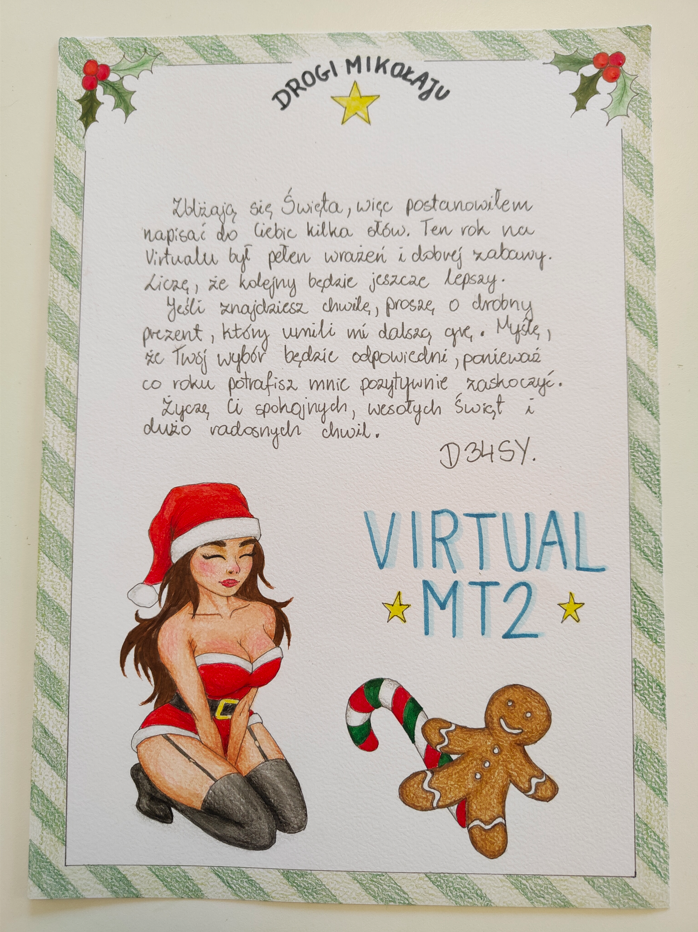 DROGI MIKOŁAJU
Zbliżają się Święta, więc postanowiłem
napisać do Ciebie kilka słów. Ten rok na
Virtualu był pełen wrażeń i dobrej zabawy.
Liczę, że kolejny będzie jeszcze lepszy.
Jeśli znajdziesz chwilę, proszę o drobny
prezent, który umili mi dalszą grę. Myślę,
że Twój wybór będzie odpowiedni, ponieważ
co roku potrafisz mnie pozytywnie zaskoczyć.
Życzę Ci spokojnych, wesołych Świąt i
dużo radosnych chwil.
D34SY.
VIRTUAL
MT2